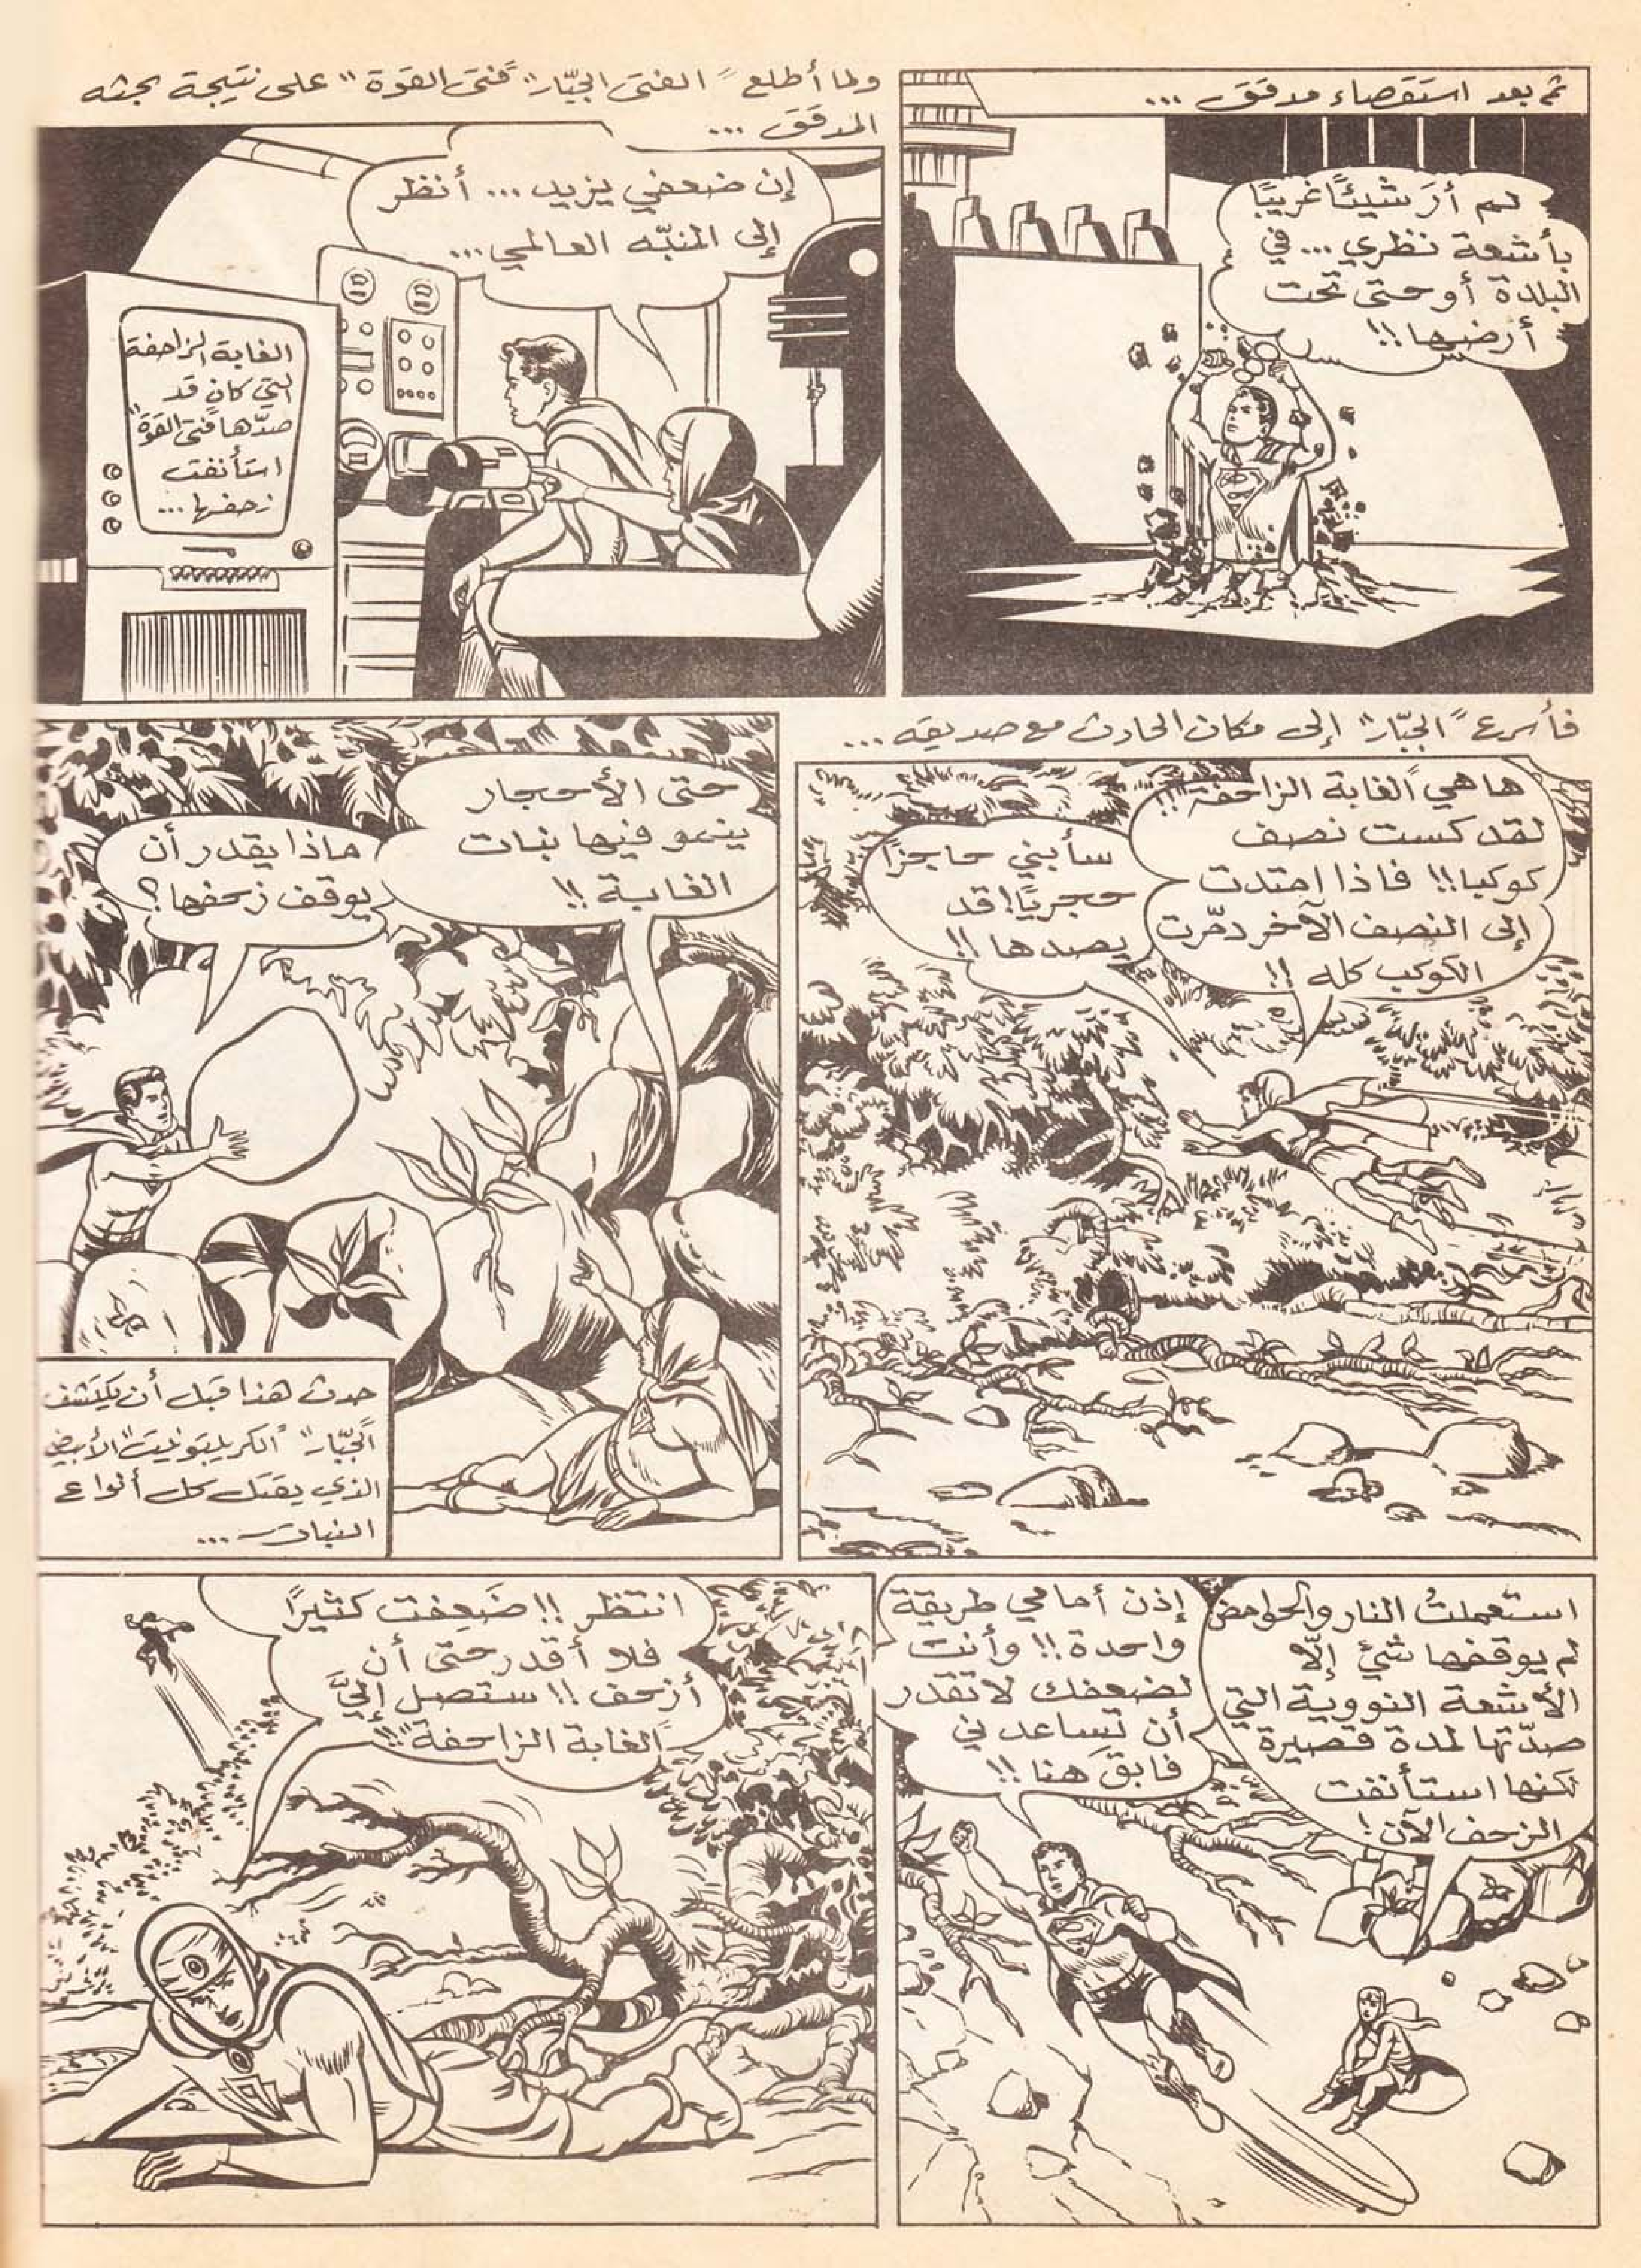 ثم بعد استقصاء مدقق ...
لم أرَ شيئًا غريبًا
بأشعة نظري ... في
البلدة أو حتى تحت
أرضها !!
ولما أطلع "الفتى الجبّار" "فتى القوة" على نتيجة بحثه
المدقق ...
إن ضعفي يزيد ... أنظر
إلى المنبّه العالمي ...
الغابة الزاحفة
التي كان قد
صدّها "فتى القوة"
استأنفت
زحفها ...
فأسرع "الجبّار" إلى مكان الحادث مع صديقه ...
ها هي "الغابة الزاحفة" !!
لقد كست نصف
كوكبا !! فاذا امتدت
إلى النصف الآخر دمّرت
الكوكب كله !!
سأبني حاجزًا
حجريًا! قد
يصدها !!
حتى الأحجار
ينمو فيها نبات
الغابة !!
ماذا يقدر أن
يوقف زحفها؟
حدث هذا قبل أن يكتشف
"الجبّار" "الكريبتونيت" الأبيض
الذي يقتل كل أنواع
النبات ...
استعملتُ النار والحوامض
لم يوقفها شئ إلّا
الأشعة النووية التي
صدّتها لمدة قصيرة
لكنها استأنفت
الزحف الآن !
إذن أمامي طريقة
واحدة !! وأنت
لضعفك لا تقدر
أن تساعدني
فابقَ هنا !!
انتظر !! ضَعِفت كثيرًا
فلا أقدر حتى أن
أزحف !! ستصل إليَّ
"الغابة الزاحفة" !!